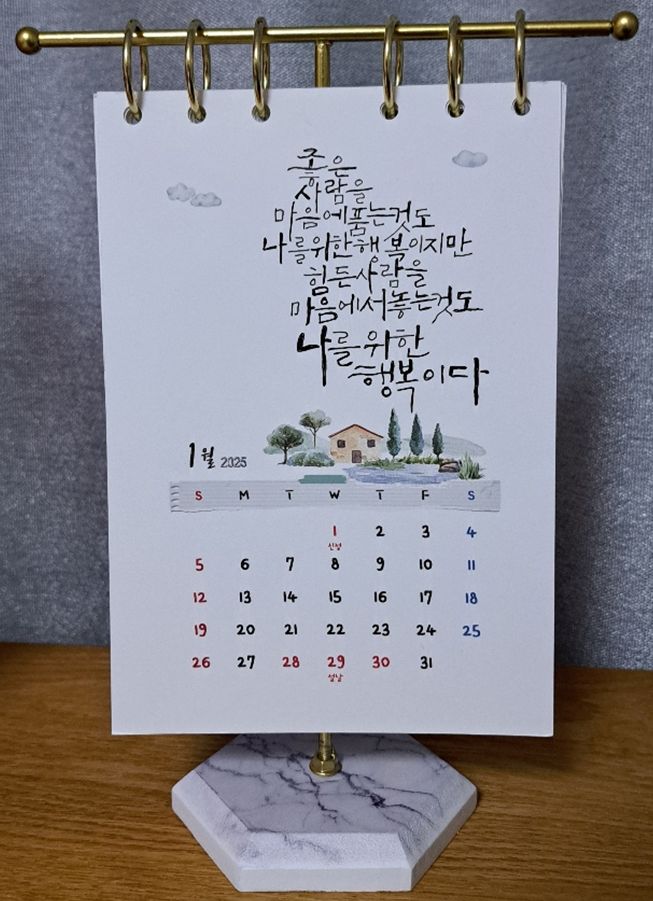 좋은
사람을
마음에품는것도
나를위한행복이지만
힘든사람을
마음에서놓는것도
나를위한
행복이다
1월 2025
S M T W T F S
1 2 3 4
신정
5 6 7 8 9 10 11
12 13 14 15 16 17 18
19 20 21 22 23 24 25
26 27 28 29 30 31
설날